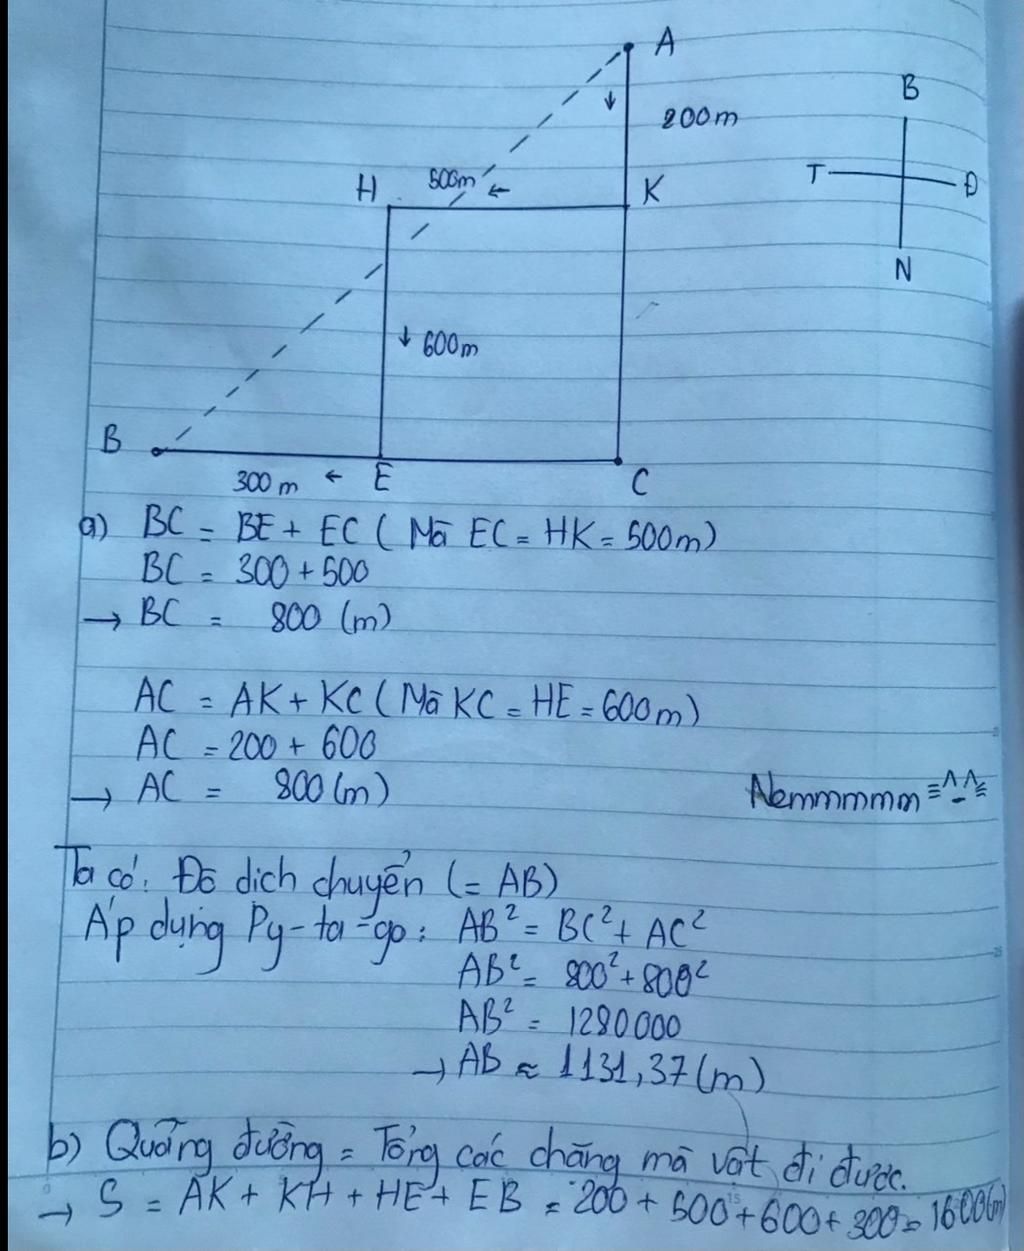 A
200m
B
T
Đ
N
H
500m
K
600m
B
300m
E
C
a) BC = BE + EC ( Mà EC = HK = 500m)
BC = 300 + 500
→ BC = 800 (m)
AC = AK + KC ( Mà KC = HE = 600m)
AC = 200 + 600
→ AC = 800 (m)
Nemmmmm ≡^-^≡
Ta có: Độ dịch chuyển (= AB)
Áp dụng Py-ta-go: AB² = BC² + AC²
AB² = 800² + 800²
AB² = 1280000
→ AB ≈ 1131,37 (m)
b) Quãng đường = Tổng các chặng mà vật đi được.
→ S = AK + KH + HE + EB = 200 + 500 + 600 + 300 = 1600(m)